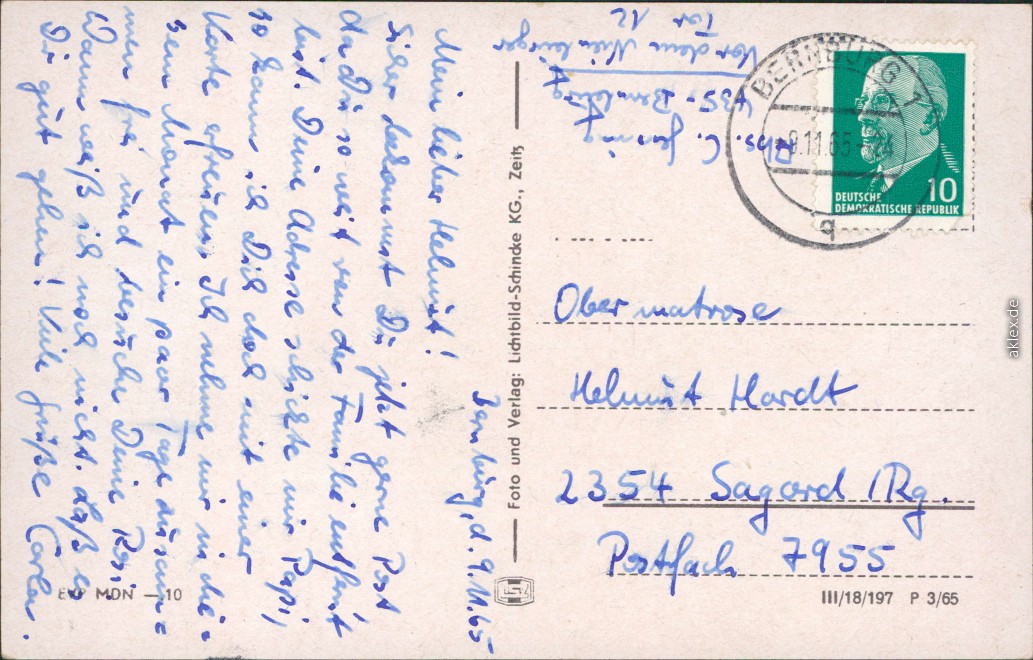 Bernburg, d. 9.11.65
Mein lieber Helmut!
Sicher bekommst Du jetzt gerne Post
da Du so weit von der Familie entfernt
bist. Deine Adresse schickte mir Papi,
so kann ich Dich doch mit einer
Karte erfreuen. Ich nehme mir in die-
sem Monat ein paar Tage zusam-
men frei und besuche Deine
Wann weiß ich noch nicht. Laß es
Dir gut gehen! Viele Grüße
Abs. C.
435 - Bernburg
Vor dem Nienburger
Tor 12
BERNBURG 1
9.11.65
q
10
DEUTSCHE
DEMOKRATISCHE REPUBLIK
Foto und Verlag: Lichtbild-Schincke KG., Zeitz
Obermatrose
Helmut Hardt
2354 Sagard /Rg.
Postfach 7955
EVP MDN — 10
III/18/197 P 3/65
aklex.de